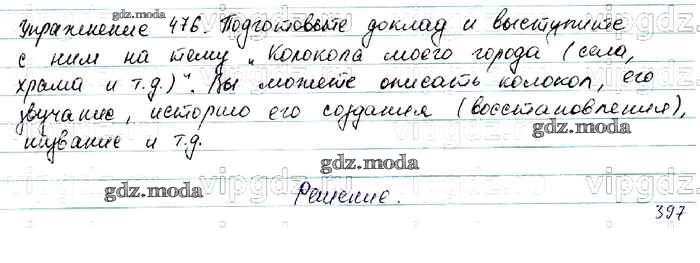 Упражнение 476. Подготовьте доклад и выступите
с ним на тему „Колокола моего города (села,
храма и т.д.)". Вы можете описать колокол, его
звучание, историю его создания (восстановления),
gdz.moda
звание и т.д.
gdz.moda
gdz.moda
vipgdz vipgdz vipgdz
Решение.
397